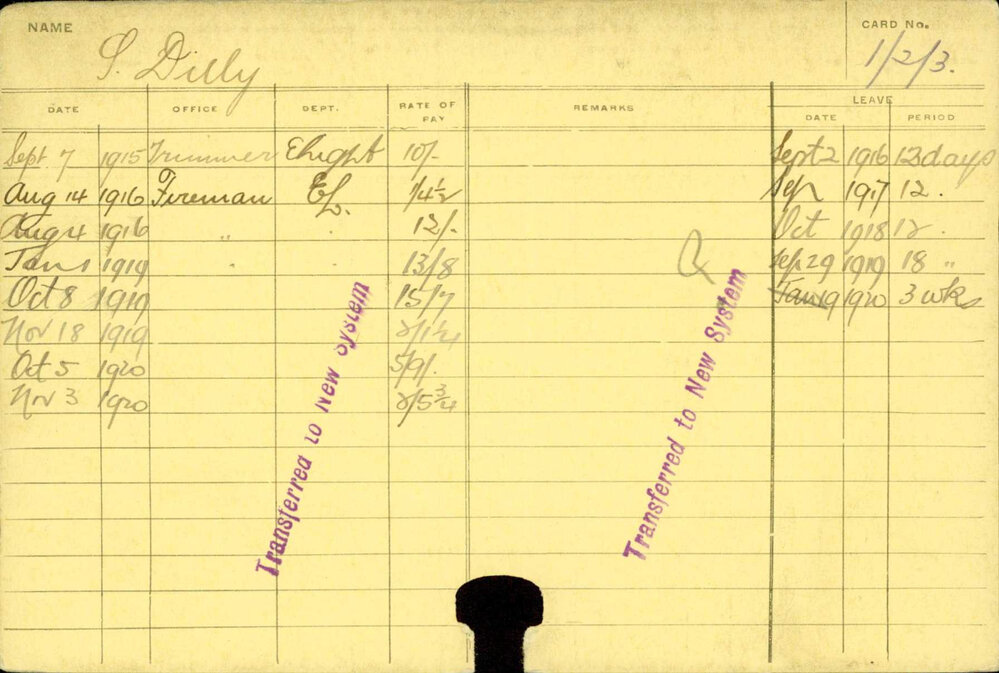 NAME S. Dilly CARD No. 1/2/3.
DATE OFFICE DEPT. RATE OF PAY REMARKS LEAVE DATE PERIOD
Sept 7 1915 Trimmer Elight 10/- Sept 2 1916 12 days
Aug 14 1916 Fireman EL. 1/4½ Sep 1917 12 .
Aug 4 1916 " . 12/- Oct 1918 12 .
Jan 1 1919 . . 13/8 Sep 29 1919 18 "
Oct 8 1919 15/7 Jan 19 1920 3 wks
Nov 18 1919 2/1¼
Oct 5 1920 5/9/.
Nov 3 1920 2/5¾
Transferred to New System
Transferred to New System